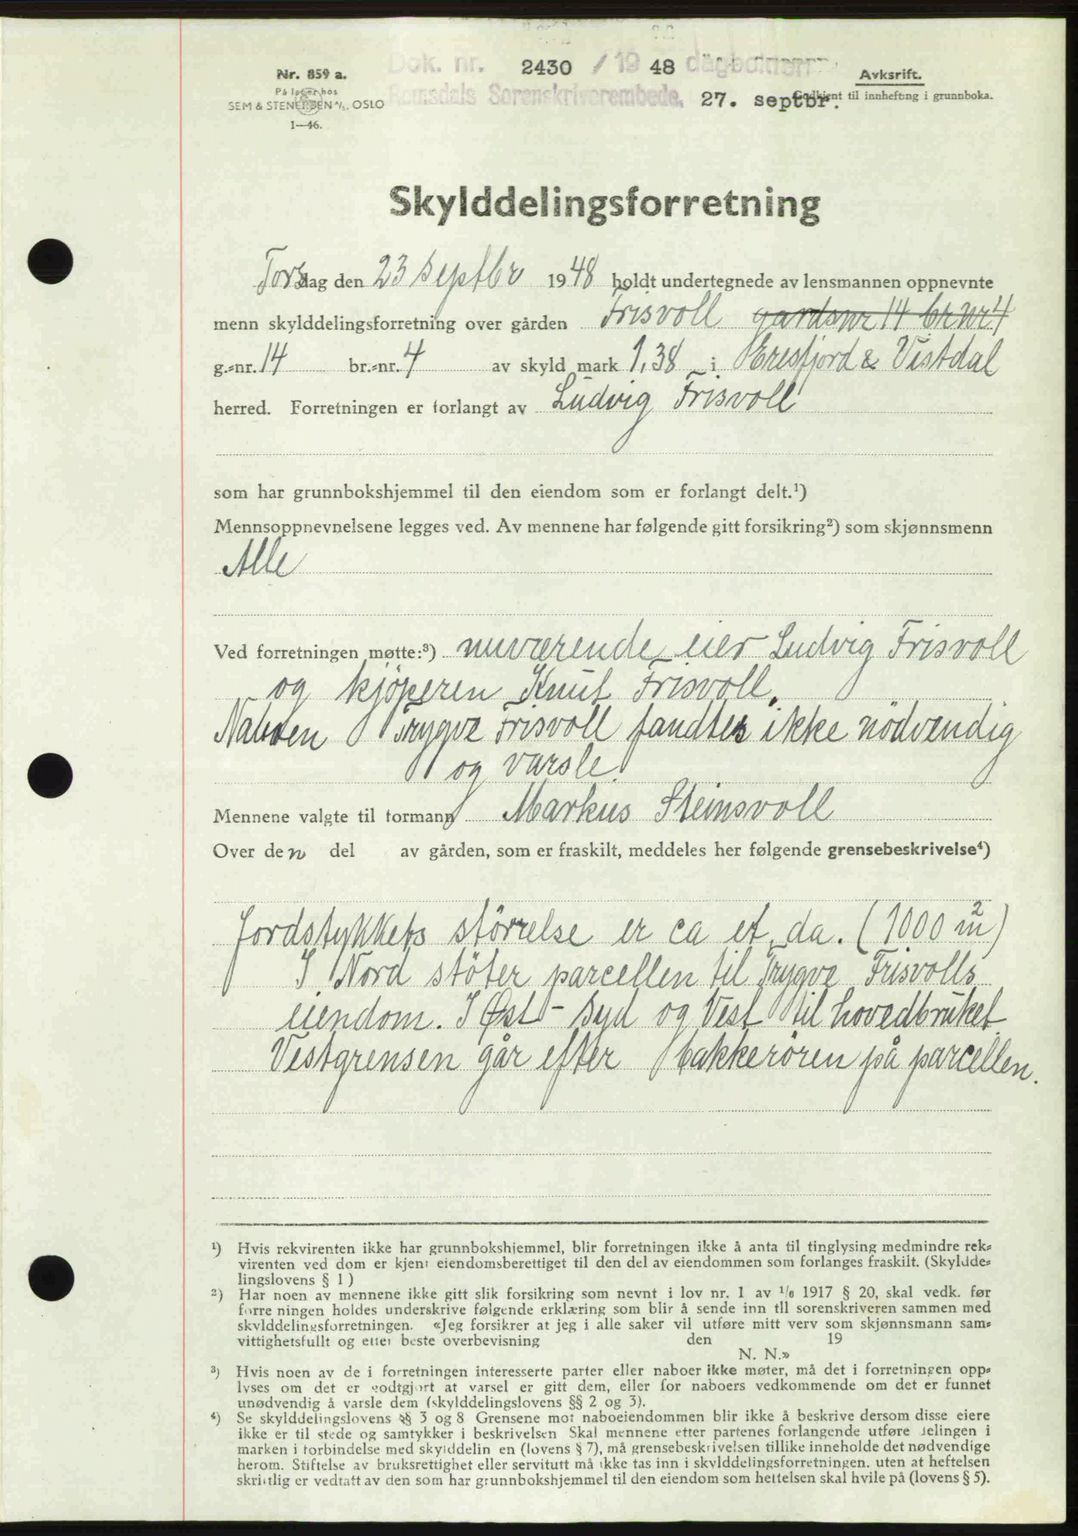 Dok. nr. 2430 / 1948 dagboken
Nr. 859 a.
Avskrift.
På lager hos
Romsdals Sorenskriverembede, 27. septbr.
Godkjent til innhefting i grunnboka.
SEM & STENERSEN A/S, OSLO
1—46.
Skylddelingsforretning
Torsdag den 23 Septbr 1948 holdt undertegnede av lensmannen oppnevnte
menn skylddelingsforretning over gården Frisvoll gardsnr 14 br nr 4
g.-nr. 14 br.-nr. 4 av skyld mark 1,38 i Eresfjord & Vistdal
herred. Forretningen er forlangt av Ludvig Frisvoll
som har grunnbokshjemmel til den eiendom som er forlangt delt.¹)
Mennsoppnevnelsene legges ved. Av mennene har følgende gitt forsikring²) som skjønnsmenn
Alle
Ved forretningen møtte:³) nuværende eier Ludvig Frisvoll
og kjöperen Knut Frisvoll.
Naboen Trygve Frisvoll fandtes ikke nödvendig
og varsle.
Mennene valgte til formann Markus Steinsvoll
Over den del av gården, som er fraskilt, meddeles her følgende grensebeskrivelse⁴)
Jordstykkets störrelse er ca et da. (1000 m²)
I Nord stöter parcellen til Trygve Frisvolls
eiendom. I Øst - Syd og Vest til hovedbruket
Vestgrensen går efter bakkerören på parcellen.
¹) Hvis rekvirenten ikke har grunnbokshjemmel, blir forretningen ikke å anta til tinglysing medmindre rek-
virenten ved dom er kjent eiendomsberettiget til den del av eiendommen som forlanges fraskilt. (Skyldde-
lingslovens § 1)
²) Har noen av mennene ikke gitt slik forsikring som nevnt i lov nr. 1 av 1/6 1917 § 20, skal vedk. før
forretningen holdes underskrive følgende erklæring som blir å sende inn til sorenskriveren sammen med
skylddelingsforretningen. «Jeg forsikrer at jeg i alle saker vil utføre mitt verv som skjønnsmann sam-
vittighetsfullt og etter beste overbevisning den 19
N. N.»
³) Hvis noen av de i forretningen interesserte parter eller naboer ikke møter, må det i forretningen opp-
lyses om det er godtgjort at varsel er gitt dem, eller for naboers vedkommende om det er funnet
unødvendig å varsle dem (skylddelingslovens §§ 2 og 3).
⁴) Se skylddelingslovens §§ 3 og 8 Grensene mot naboeiendommen blir ikke å beskrive dersom disse eiere
ikke er til stede og samtykker i beskrivelsen Skal mennene etter partenes forlangende utføre delingen i
marken i forbindelse med skylddelingen (lovens § 7), må grensebeskrivelsen tillike inneholde det nødvendige
herom. Stiftelse av bruksrettighet eller servitutt må ikke tas inn i skylddelingsforretningen, uten at heftelsen
skriftlig er vedtatt av den som har grunnbokshjemmel til den eiendom som heftelsen skal hvile på (lovens § 5).